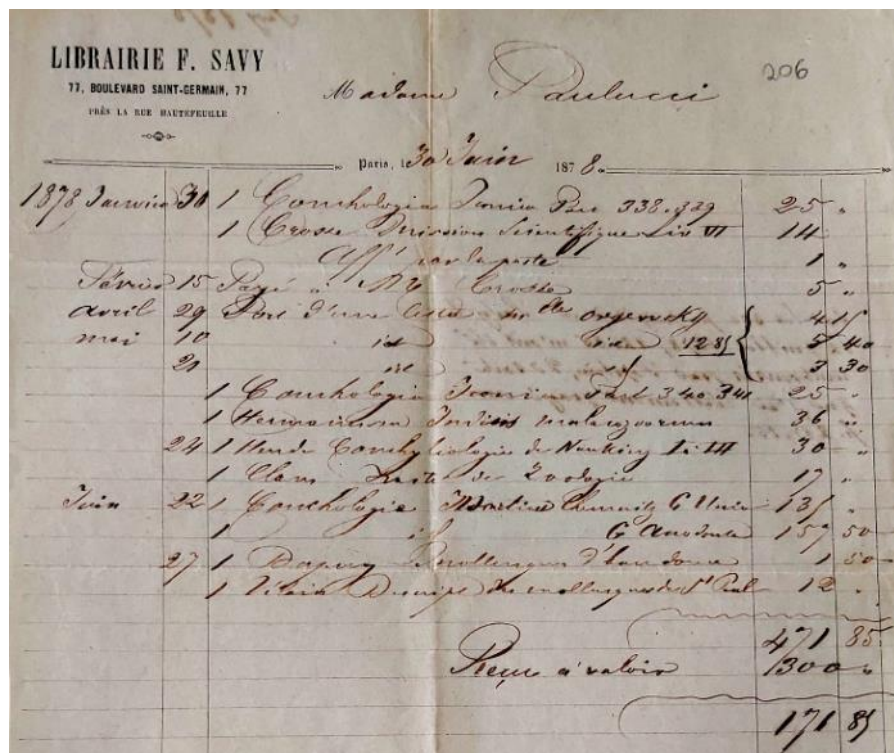 LIBRAIRIE F. SAVY
77, BOULEVARD SAINT-GERMAIN, 77
PRÈS LA RUE HAUTEFEUILLE
206
Madame Paulucci
Paris, le 30 Juin 1878
1878 Janvier 30 1 Conchologia Iconica Par 338.339 25 "
1 Crosse Mission Scientifique Liv VI 14
Aff par la poste 1 "
Février 15 Payé à Mr Crosse 5 "
avril 29 Port d'une Caisse 4 15
mai 10 id 12 85 5 40
21 id 3 30
1 Conchologia Iconica 340 341 25 "
1 Herrmannsen Indicis malacozoorum 36 "
24 1 Conchyliologie de I à III 30 "
1 Claus Traité de Zoologie 17 "
Juin 22 1 Conchologie Martini Chemnitz G Unio 135 "
1 id G Anodonta 157 50
27 1 Dupuy mollusques 1 50
1 Vélain des mollusques de St Paul 12 "
471 85
Reçu à valoir 300 "
171 85